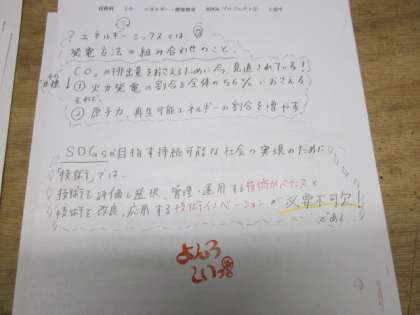 技術科 2年 エネルギー変換技術 SDGsプロジェクト②
エネルギーミックスとは
発電方法の組み合わせのこと。
CO₂の排出量をおさえるために今、見直されている!
目標
① 火力発電の割合を全体の56%におさえる
それと、
② 原子力、再生可能エネルギーの割合を増やす
SDGsが目指す持続可能な社会の実現のために
「技術」では、
技術を評価し選択、管理・運用する技術ガバナンスと
技術を改良、応用する技術イノベーションが必要不可欠!
である